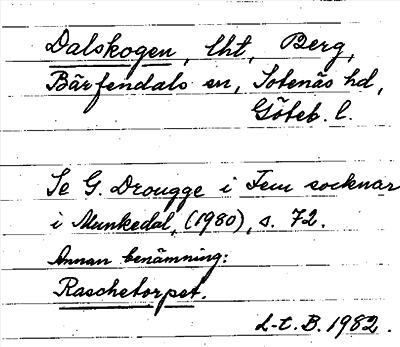 Dalskogen, lht, Berg,
Bärfendals sn, Sotenäs hd,
Göteb. l.
Se G. Drougge i Fem socknar
i Munkedal, (1980), s. 72.
Annan benämning:
Raschetorpet.
L-t. B. 1982.